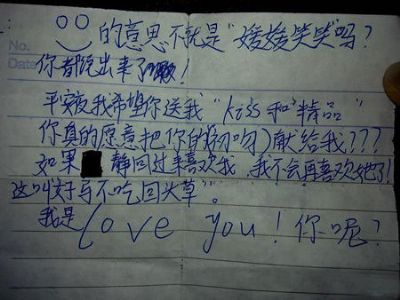 No.
的意思不就是"媛媛笑笑"吗?
Date
你都说出来了!
平安夜我希望你送我"kiss和"精品"
你真的愿意把你的(初吻)献给我???
如果 静回过来喜欢我,我不会再喜欢她了!
这叫好马不吃回头草"。
我是 Love you! 你呢?